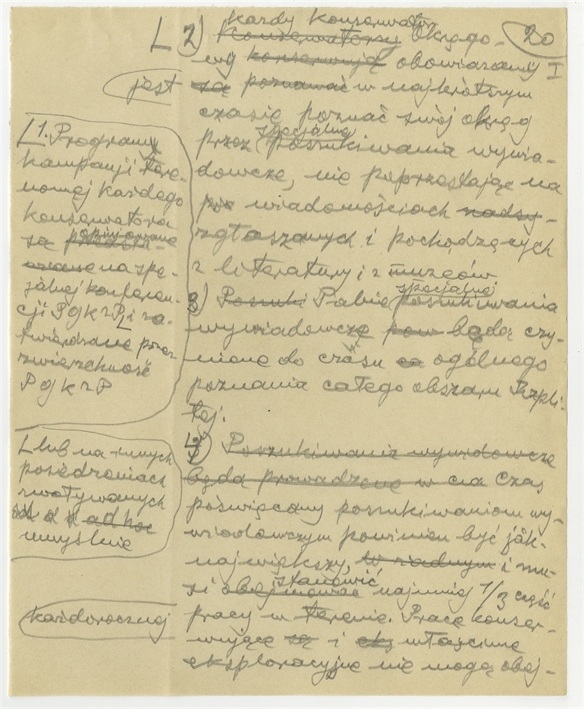 20
każdy konserwator
L 2) Konserwatorzy Okręgo-
wy konserwują obowiązany I
jest są poznawać w najkrótszym
czasie poznać swój okręg
specjalne
przez poszukiwania wywia-
dowcze, nie poprzestając na
po wiadomościach nadsy-
zgłaszanych i pochodzących
z literatury i z muzeów
specjalnej
3) Poszuki Pabie poszukiwania
wywiadowcze pow będą czy-
nione do czasu co ogólnego
poznania całego obszaru Rzpli-
tej.
4) Poszukiwania wywiadowcze
będą prowadzone w cza Czas
poświęcony poszukiwaniom wy-
wiadowczym powinien być jak-
największy, to żadnym i mu-
stanowić
si obejmować najmniej 1/3 część
pracy w terenie. Prace konser-
wujące są i właściwe
eksploracyjne nie mogą obej-
L 1. Programy
kampanji tere-
nowej każdego
konserwatora
opinjowane
są
na spe-
cjalnej konferen-
cji PGKZP i za-
twierdzane przez
zwierzchność
PGKZP
L lub na innych
posiedzeniach
zwoływanych
ad hoc
umyślnie
każdorocznej